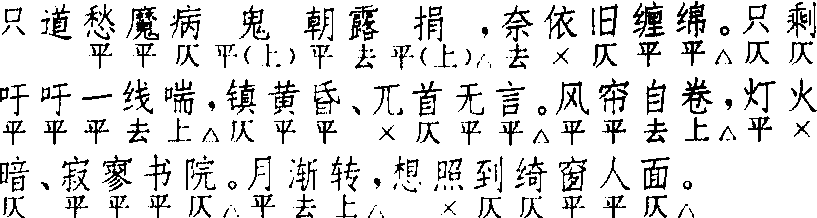 只道愁魔病鬼朝露捐，奈依旧缠绵。只剩
平平仄平(上)平去平(上)△去×仄平平△仄仄
吁吁一线喘，镇黄昏、兀首无言。风帘自卷，灯火
平平平去上△仄平平×仄平平△平平去上△平×
暗、寂寥书院。月渐转，想照到绮窗人面。
仄平平平仄△平去上△×仄仄平平仄△